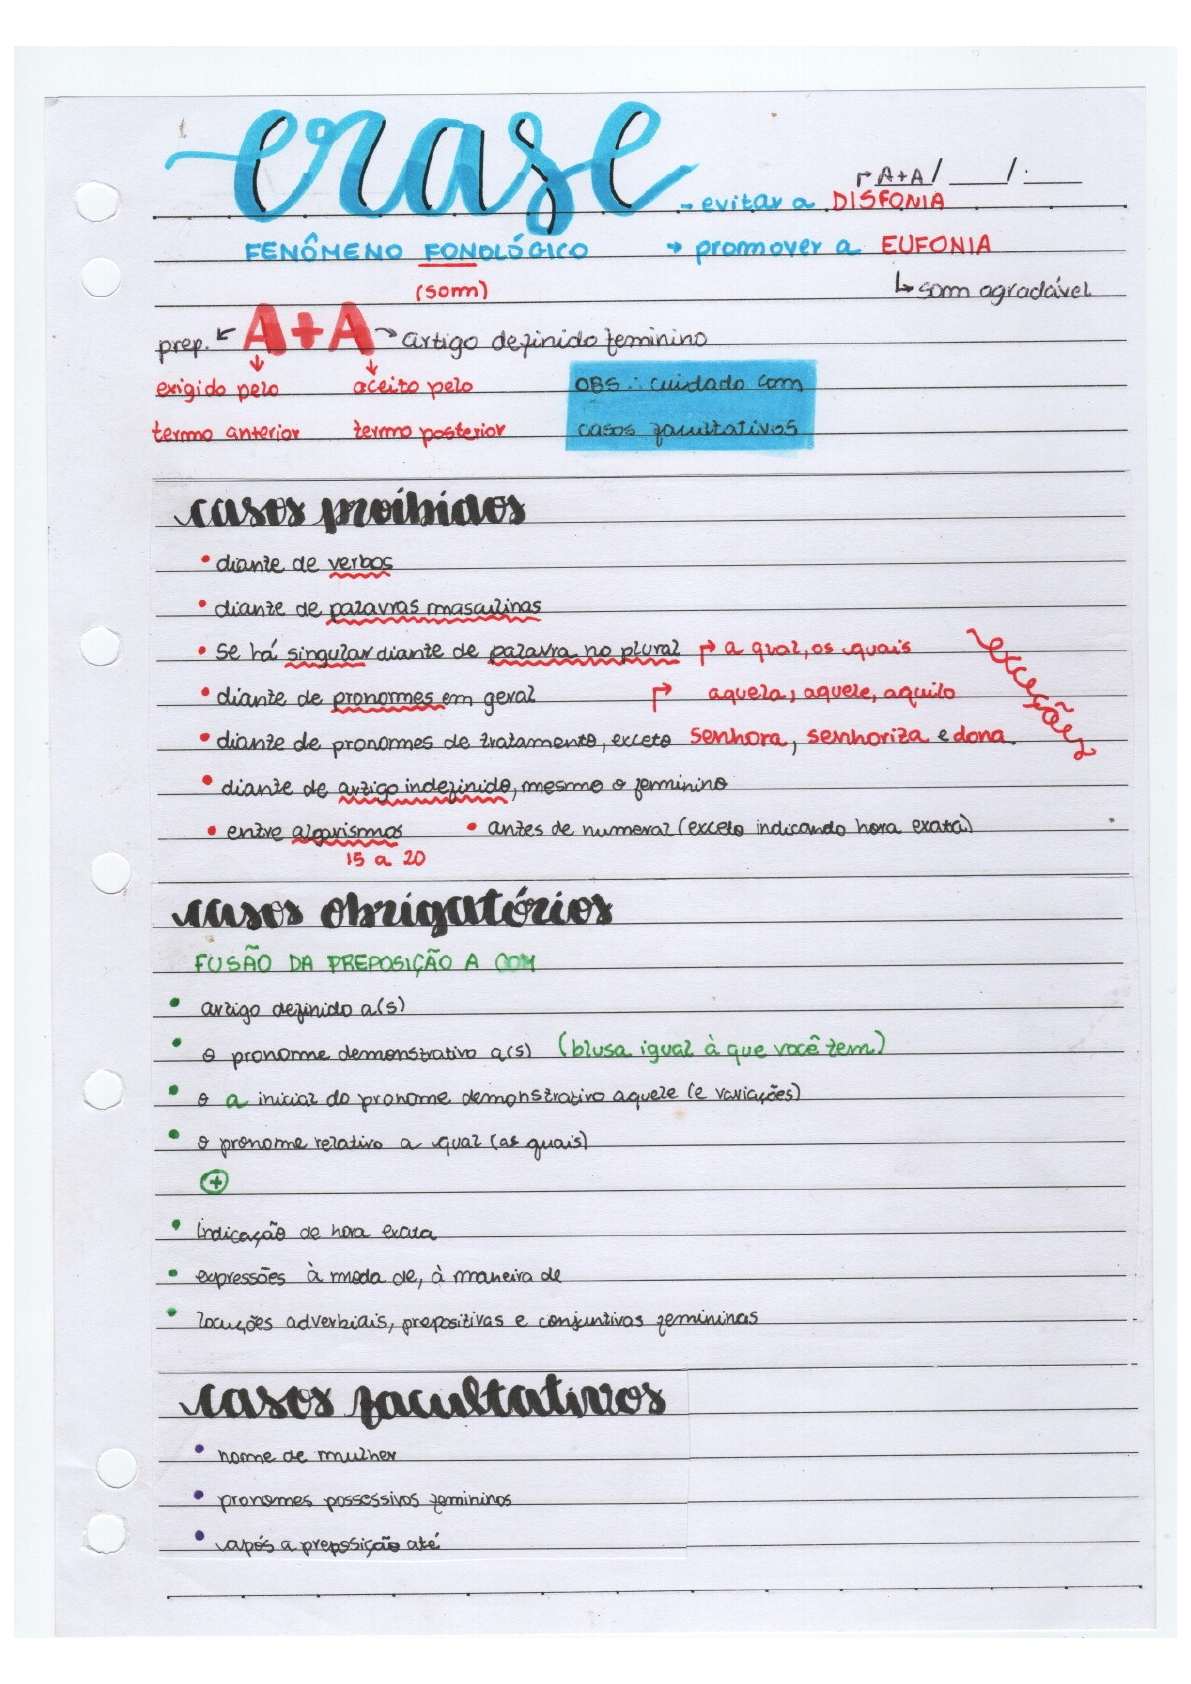 crase
A+A
→ evitar a DISFONIA
FENÔMENO FONOLÓGICO → promover a EUFONIA
(som) ↳ som agradável
prep. ← A+A → artigo definido feminino
exigido pelo aceito pelo OBS.: cuidado com
termo anterior termo posterior casos facultativos
casos proibidos
• diante de verbos
• diante de palavras masculinas
• Se há singular diante de palavra no plural ↱ a qual, os quais
exceções
• diante de pronomes em geral ↱ aquela, aquele, aquilo
• diante de pronomes de tratamento, exceto senhora, senhorita e dona.
• diante de artigo indefinido, mesmo o feminino
• entre algarismos • antes de numeral (exceto indicando hora exata)
15 a 20
casos obrigatórios
FUSÃO DA PREPOSIÇÃO A COM
• artigo definido a(s)
• o pronome demonstrativo a(s) (blusa igual à que você tem)
• o a inicial do pronome demonstrativo aquele (e variações)
• o pronome relativo a qual (as quais)
+
• Indicação de hora exata
• expressões à moda de, à maneira de
• locuções adverbiais, prepositivas e conjuntivas femininas
casos facultativos
• nome de mulher
• pronomes possessivos femininos
• após a preposição até